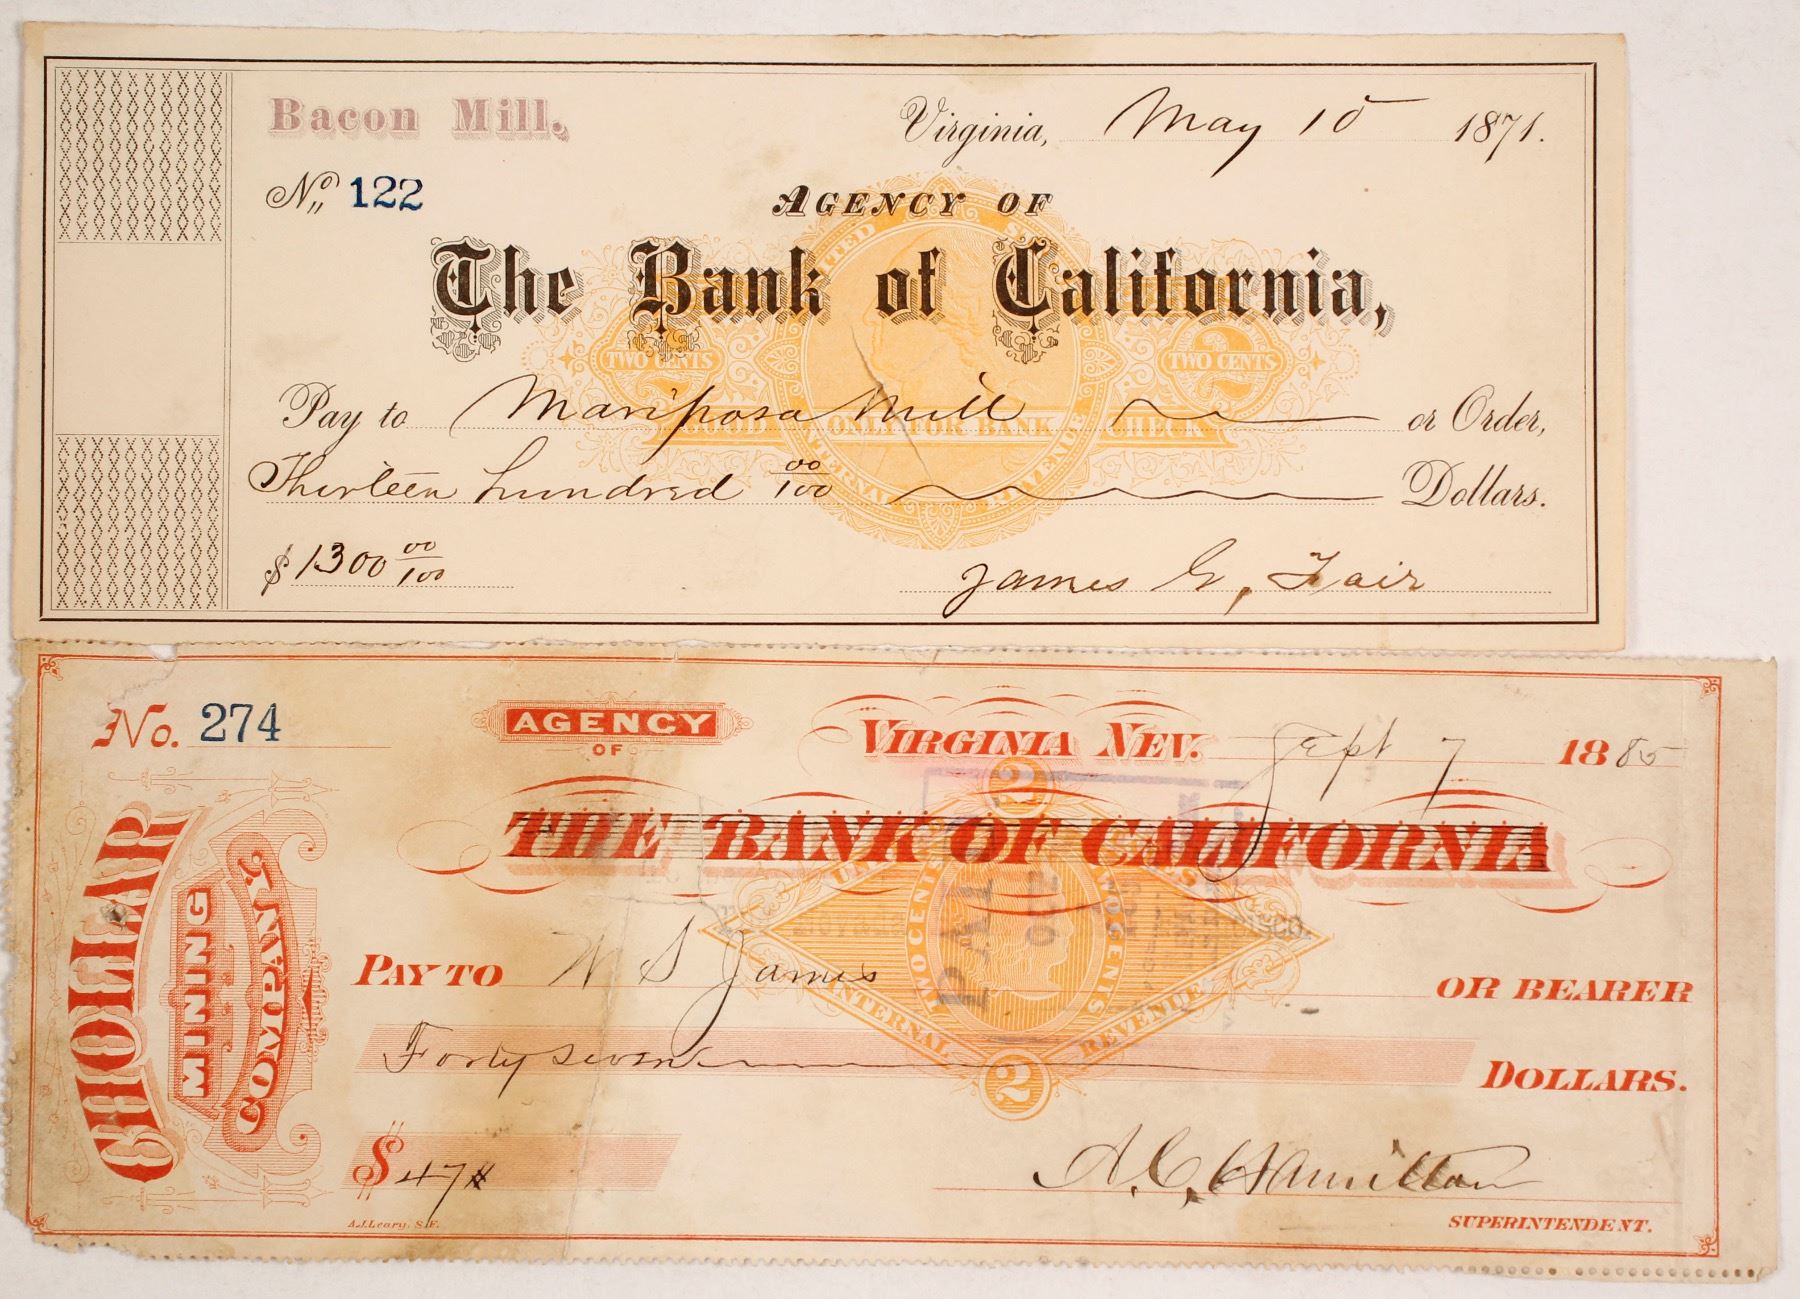 Bacon Mill.
Virginia, May 10 1871.
No. 122
AGENCY OF
The Bank of California,
UNITED STATES
TWO CENTS 2 TWO CENTS 2
Pay to Mariposa Mill or Order,
GOOD ONLY FOR BANK CHECK
INTERNAL REVENUE
Thirteen hundred 00/100 Dollars.
$1300 00/100
James G, Fair
No. 274
AGENCY
OF
VIRGINIA NEV. Sept 7 1885
2
THE BANK OF CALIFORNIA
CHOLLAR
MINING
COMPANY
TWO CENTS TWO CENTS
PAY TO W S James OR BEARER
INTERNAL REVENUE
Forty seven DOLLARS.
2
$47
A. C. Hamilton
A.J. Leary, S.F.
SUPERINTENDENT.